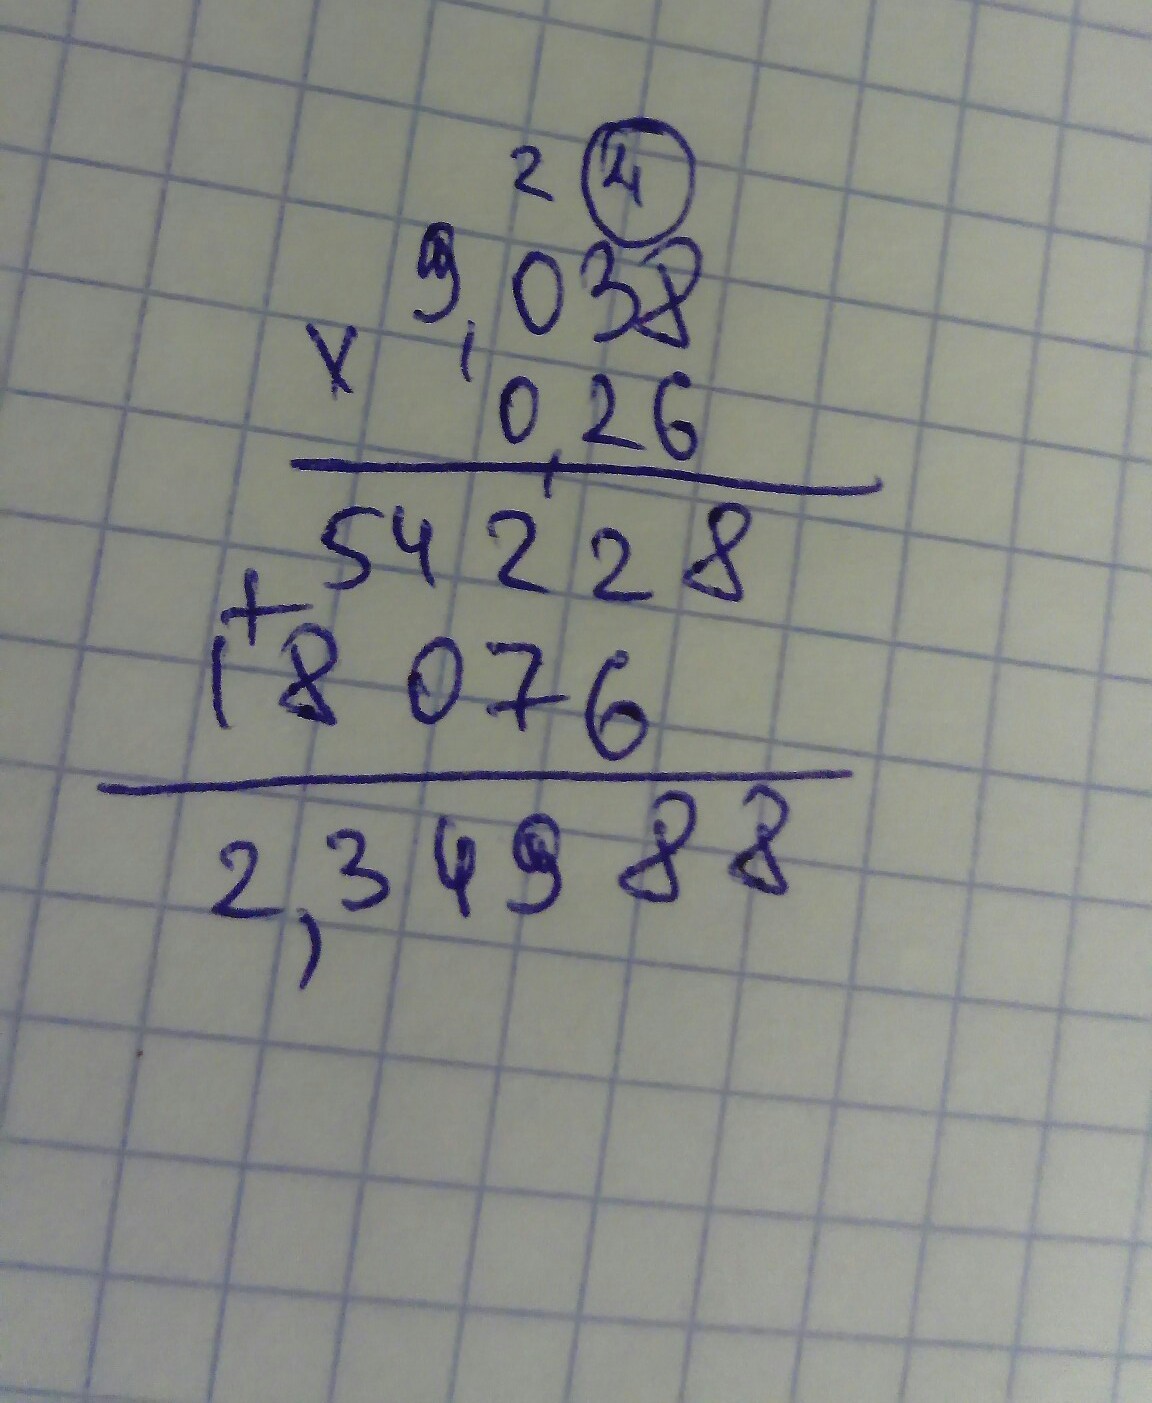 2 4
9,038
x 0,26
54228
+
18076
2,34988